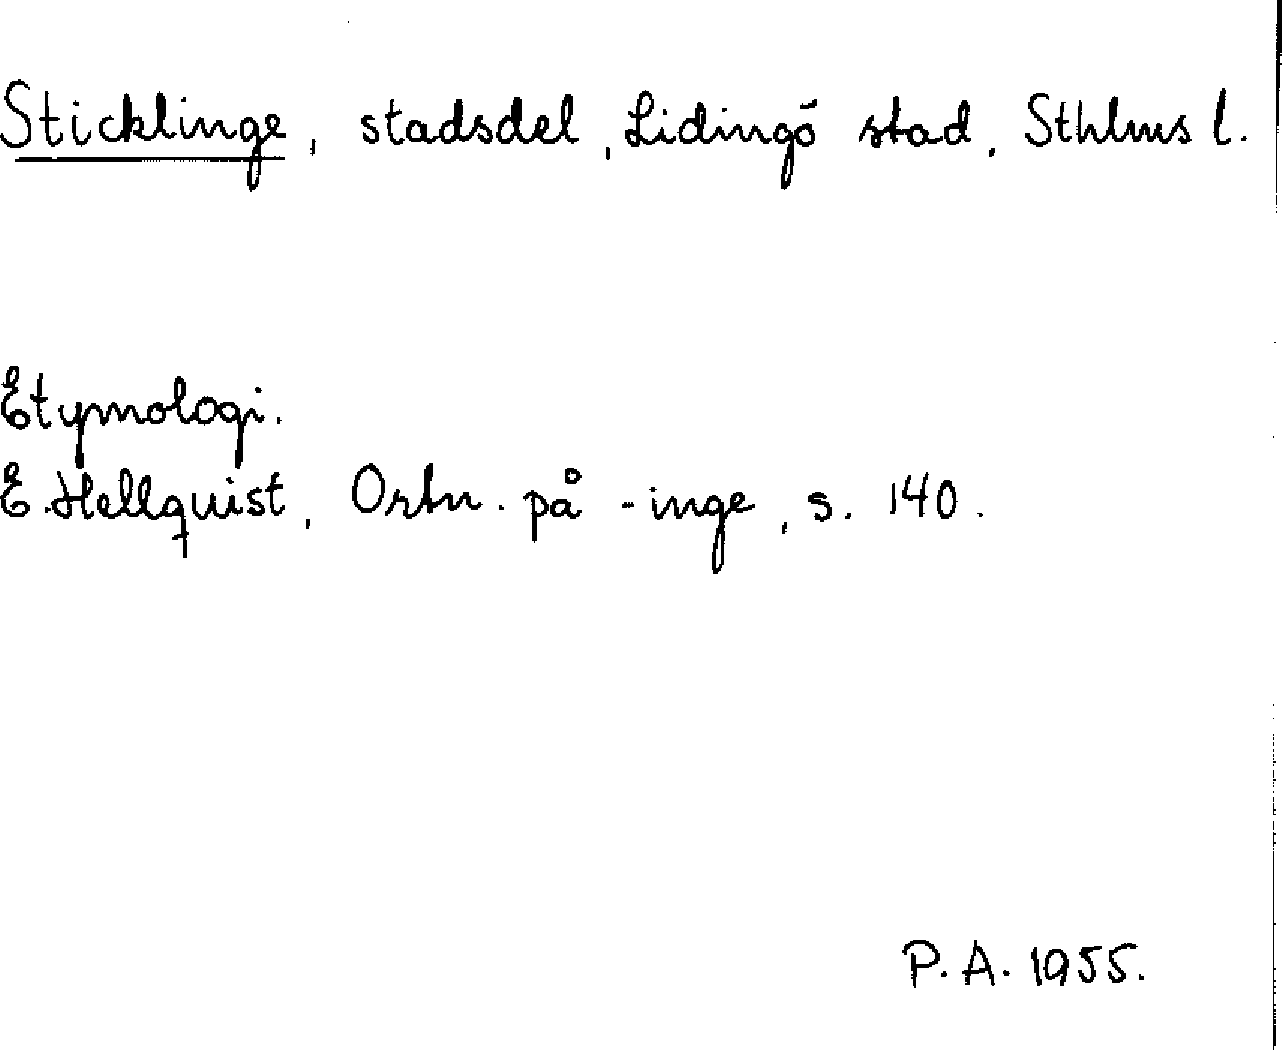 Sticklinge, stadsdel, Lidingö stad, Sthlms l.
Etymologi.
E. Hellquist, Ortn. på -inge, s. 140.
P.A. 1955.